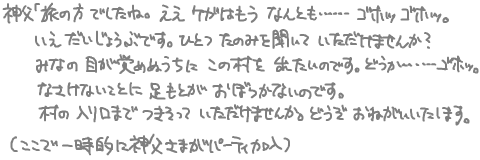 神父「旅の方でしたね。ええケガはもう なんとも…… ゴホッ ゴホッ。
いえ だいじょうぶです。ひとつ たのみを聞いて いただけませんか?
みなの 目が覚めぬうちに この村を 出たいのです。どうか……ゴホッ。
なさけないことに 足もとが おぼつかないのです。
村の 入り口まで つきそって いただけませんか。どうぞ おねがいいたします。
(ここで一時的に神父さまがパーティ加入)